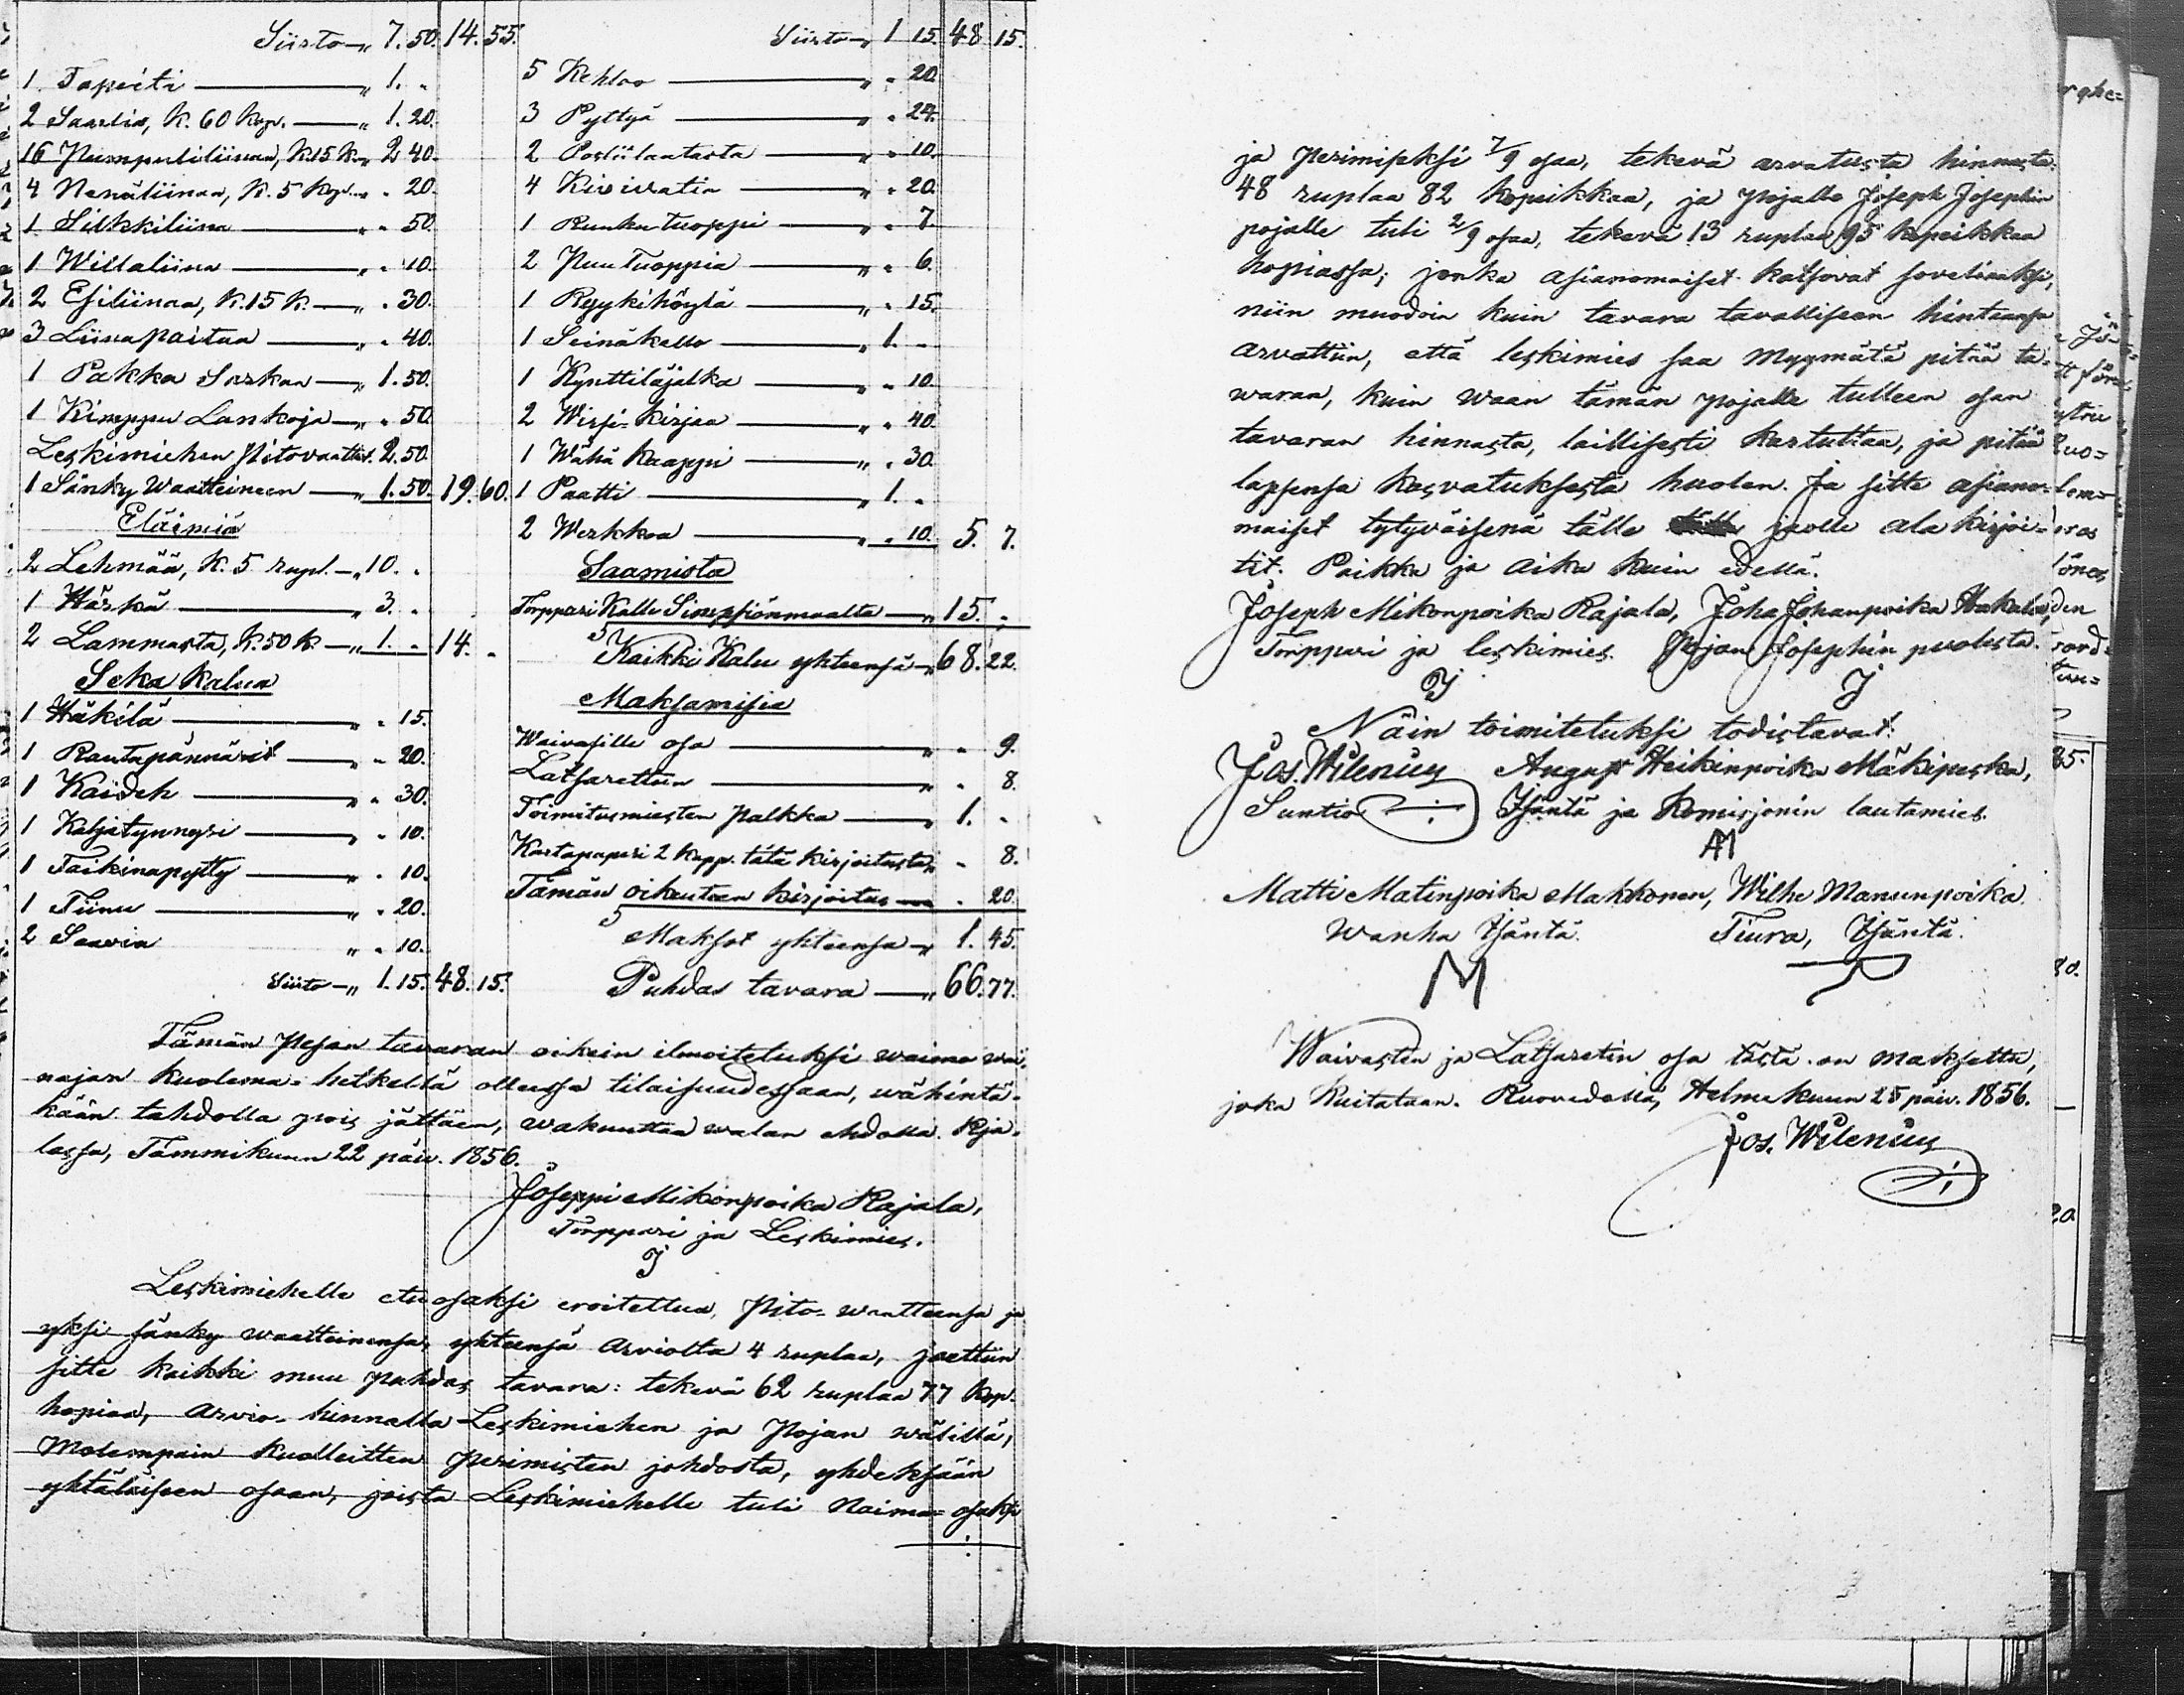 Siirto — „ 7. 50. 14. 55.
1 Tapeeti — „ 1. „
2 Saalia, k. 60 kop. — „ 1. 20.
16 Pumpuliliinaa, k. 15 k. „ 2 40.
4 Nenäliinaa, k. 5 kop. — „ „ 20.
1 Silkkiliina — „ „ 50.
1 Willaliina — „ „ 10.
2 Esiliinaa, k. 15 k. — „ „ 30.
3 Liinapaitaa — „ „ 40.
1 Pakka Sarkaa — „ 1. 50.
1 Kimppu Lankoja — „ „ 50.
Leskimiehen Pitovaattet. 2. 50.
1 Sänky Waatteineen — „ 1. 50. 19. 60.
Eläimiä
2 Lehmää, k. 5 rupl. — „ 10. „
1 Härkä — „ 3. „
2 Lammasta, k. 50 k. — „ 1. „ 14. „
Seka kalua
1 Häkilä — „ „ 15.
1 Rautapännärit — „ „ 20.
1 Kaideh — „ „ 30.
1 Kaljatynnyri — „ „ 10.
1 Taikinapytty — „ „ 10.
1 Tiinu — „ „ 20.
2 Saavia „ „ 10.
Siirto — „ 1. 15. 48. 15.
Siirto — „ 1 15. 48 15.
5 Kehloo — „ „ 20.
3 Pyttyä — „ „ 24.
2 Posliilautasta — „ „ 10.
4 Kivivatia — „ „ 20.
1 Ruukutuoppi — „ „ 7.
2 Puu Tuoppia — „ „ 6.
1 Ryykihöylä — „ „ 15.
1 Seinäkello — „ 1. „
1 Kynttiläjalka — „ „ 10.
2 Wirsi-kirjaa — „ „ 40.
1 Wähä Kaappi — „ „ 30.
1 Paatti — „ 1. „
2 Werkkoa — „ „ 10. 5. 7.
Saamista
Torppari Kalle Simpsiönmaalta — „ 15. „
Kaikki Kalu yhteensä — „ 68. 22.
Maksamisia
Waivasille osa — „ „ 9.
Latsarettiin — „ „ 8.
Toimitusmiesten palkka — „ 1. „
Kartapaperi 2 kapp. tätä kirjoitusta „ „ 8.
Tämän oikeuteen kirjoitus — „ „ 20.
Maksot yhteensä — „ 1. 45.
Puhdas tavara — „ 66. 77.
Tämän Pesän tavaran oikein ilmoitetuksi waimo wai-
najan kuolema-hetkellä ollessa tilaisuudessaan, wähintä-
kään tahdolla pois jättäen, wakuuttaa walan ehdolla. Rja-
lassa, Tammikuun 22 päiv. 1856.
Joseppi Mikonpoika Rajala,
Torppari ja Leskimies.
J
Leskimiehelle etuosaksi eroitettua, Pito-waatteensa ja
yksi sänky waatteinensa, yhteensä arviolta 4 ruplaa, jaettiin
sitte kaikki muu puhdas tavara: tekevä 62 ruplaa 77 kop.
hopiaa, arvio-hinnalla Leskimiehen ja Pojan wälillä,
Molempain kuolleitten perimisten johdosta, yhdeksään
yhtäläiseen osaan, joista Leskimiehelle tuli Naima-osaksi
ja perimiseksi 7/9 osaa, tekevä arvatusta hinnasta
48 ruplaa 82 kopeikkaa, ja pojalle Joseph Josephin
pojalle tuli 2/9 osaa, tekevä 13 ruplaa 95 kopeikkaa
hopiassa; jonka asianomaiset katsovat soveliaaksi,
niin muodoin kuin tavara tavalliseen hintaansa
arvattiin, että leskimies saa myymätä pitää ta-
waran, kuin waan tämän pojalle tulleen osan
tavaran hinnasta, laillisesti kartuttaa, ja pitää
lapsensa kasvatuksesta huolen. Ja sitte asiano-
maiset tytyväisenä tälle jaolle ala kirjoi-
tit. Paikka ja aika kuin edellä.
Joseph Mikonpoika Rajala, Joha Johanpoika Hakala,
Torppari ja leskimies. Pojan Josephin puolesta.
J J
Näin toimitetuksi todistavat:
Jos. Wilenius August Heikinpoika Mäkipeska,
Suntio Isäntä ja Komisjonin lautamies.
AM
Matti Matinpoika Makkonen, Wilhe Manunpoika
Wanha Isäntä. Tiura, Isäntä.
M
Waivasten ja Latsaretin osa tästä on maksettu,
joka kuitataan. Ruovedellä, Helmikuun 25 päiv. 1856.
Jos. Wilenius